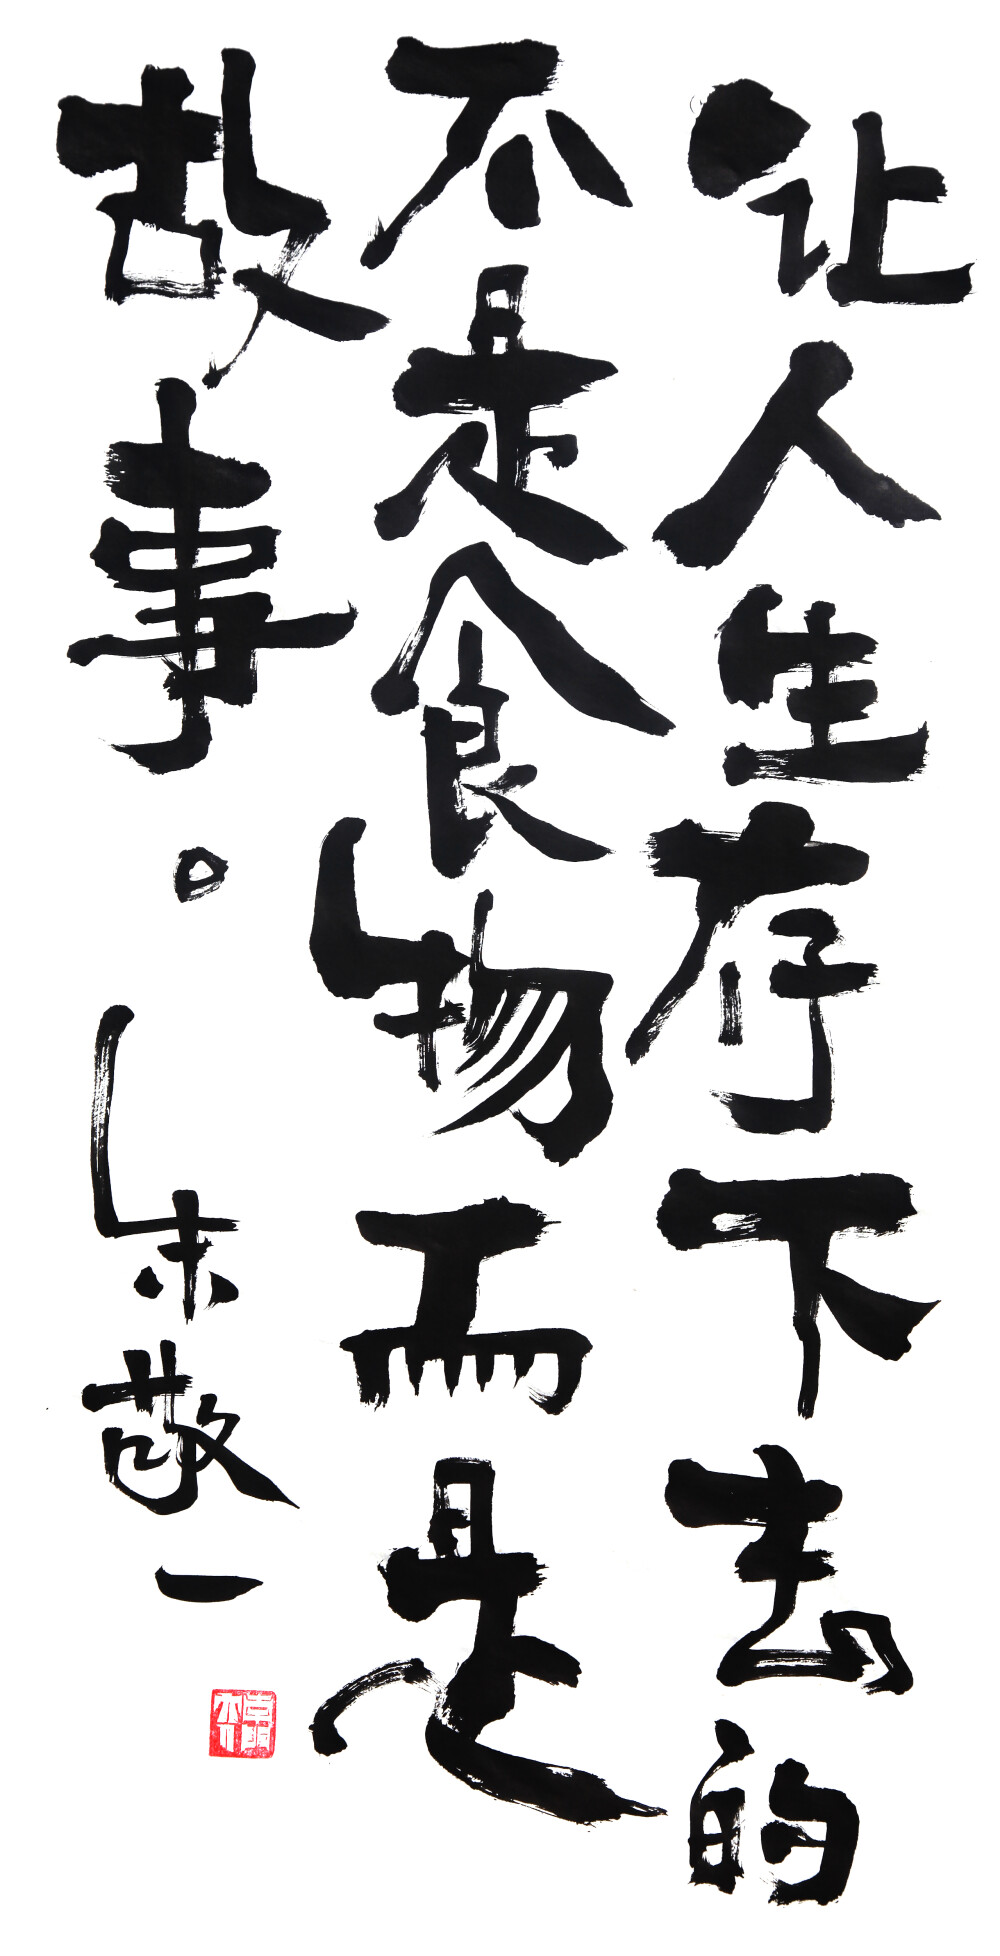 让人生存下去的
不是食物而是
故事。朱敬一